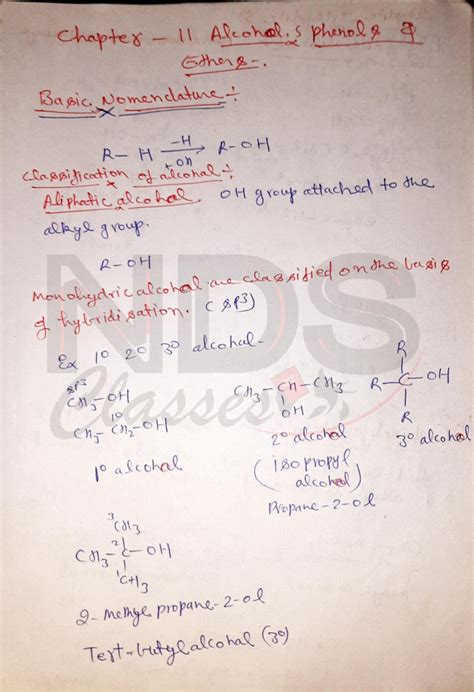 Chapter - 11 Alcohol.s phenols &
Ethers-.
Basic Nomenclature ÷
R- H -H +OH → R-OH
classification of alcohal ÷
Aliphatic alcohal OH group attached to the
alkyl group.
R-OH
Monohydric alcohal are classified on the basis
of hybridisation. (sp3)
Ex 1° 2° 3° alcohal-
sp3
CH3-OH
CH3-CH-CH3
R-C-OH
R
R
OH
1°
CH3-CH2-OH
2° alcohal
3° alcohal
1° alcohal
(isopropyl
alcohal)
Propane-2-ol
3
CH3
CH3-C-OH
2
1
CH3
2- Methyl propane-2-ol
Tert-butyl alcohal (3°)
NDS
Classes